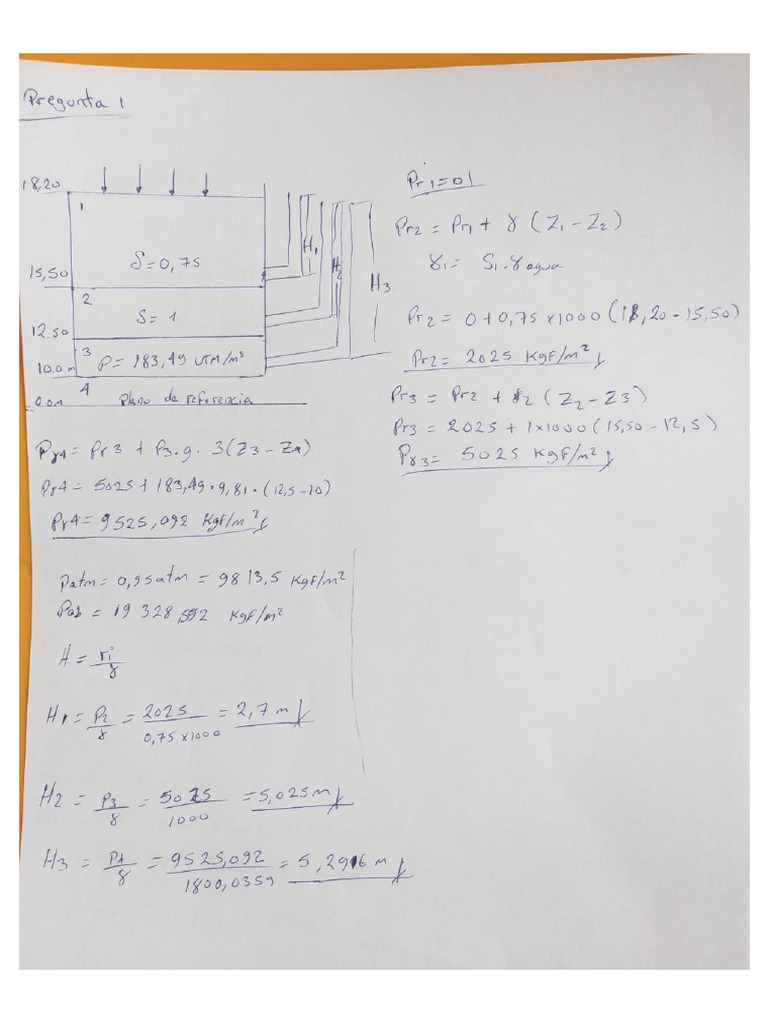 Pregunta 1
18,20
1
S=0,75
H1
15,50
2
S=1
H2
H3
12.50
3
P= 183,49 UTM/m³
10.0 m
4
0.0m Plano de referencia
Pr1=0
Pr2 = Pr1 + γ (Z1 - Z2)
γ1= S1.γagua
Pr2 = 0+0,75 x 1000 (18,20-15,50)
Pr2= 2025 KgF/m²
Pr3 = Pr2 + γ2 (Z2 - Z3)
Pr3= 2025+1x1000 (15,50-12,5)
Pr3= 5025 KgF/m²
Pr4= Pr3 + P3.g. 3(Z3-Z4)
Pr4= 5025+183,49.9,81.(12,5-10)
Pr4= 9525,092 KgF/m²
Patm= 0,95atm = 9813,5 KgF/m²
= 19 328,592 KgF/m²
H =
H1 = P2/γ = 2025/0,75x1000 = 2,7 m
H2 = P3/γ = 5025/1000 = 5,025m
H3 = P4/γ = 9525,092/1800,0359 = 5,2916 m